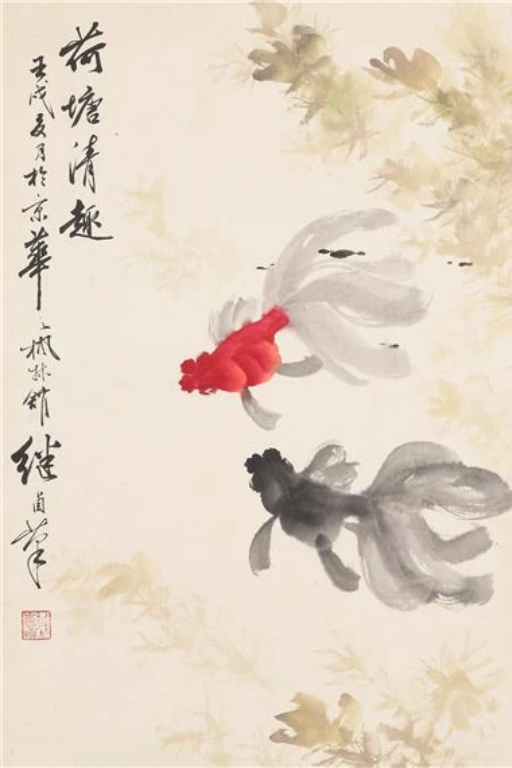 荷塘清趣
壬戌夏月於京華枫林館继卣笔